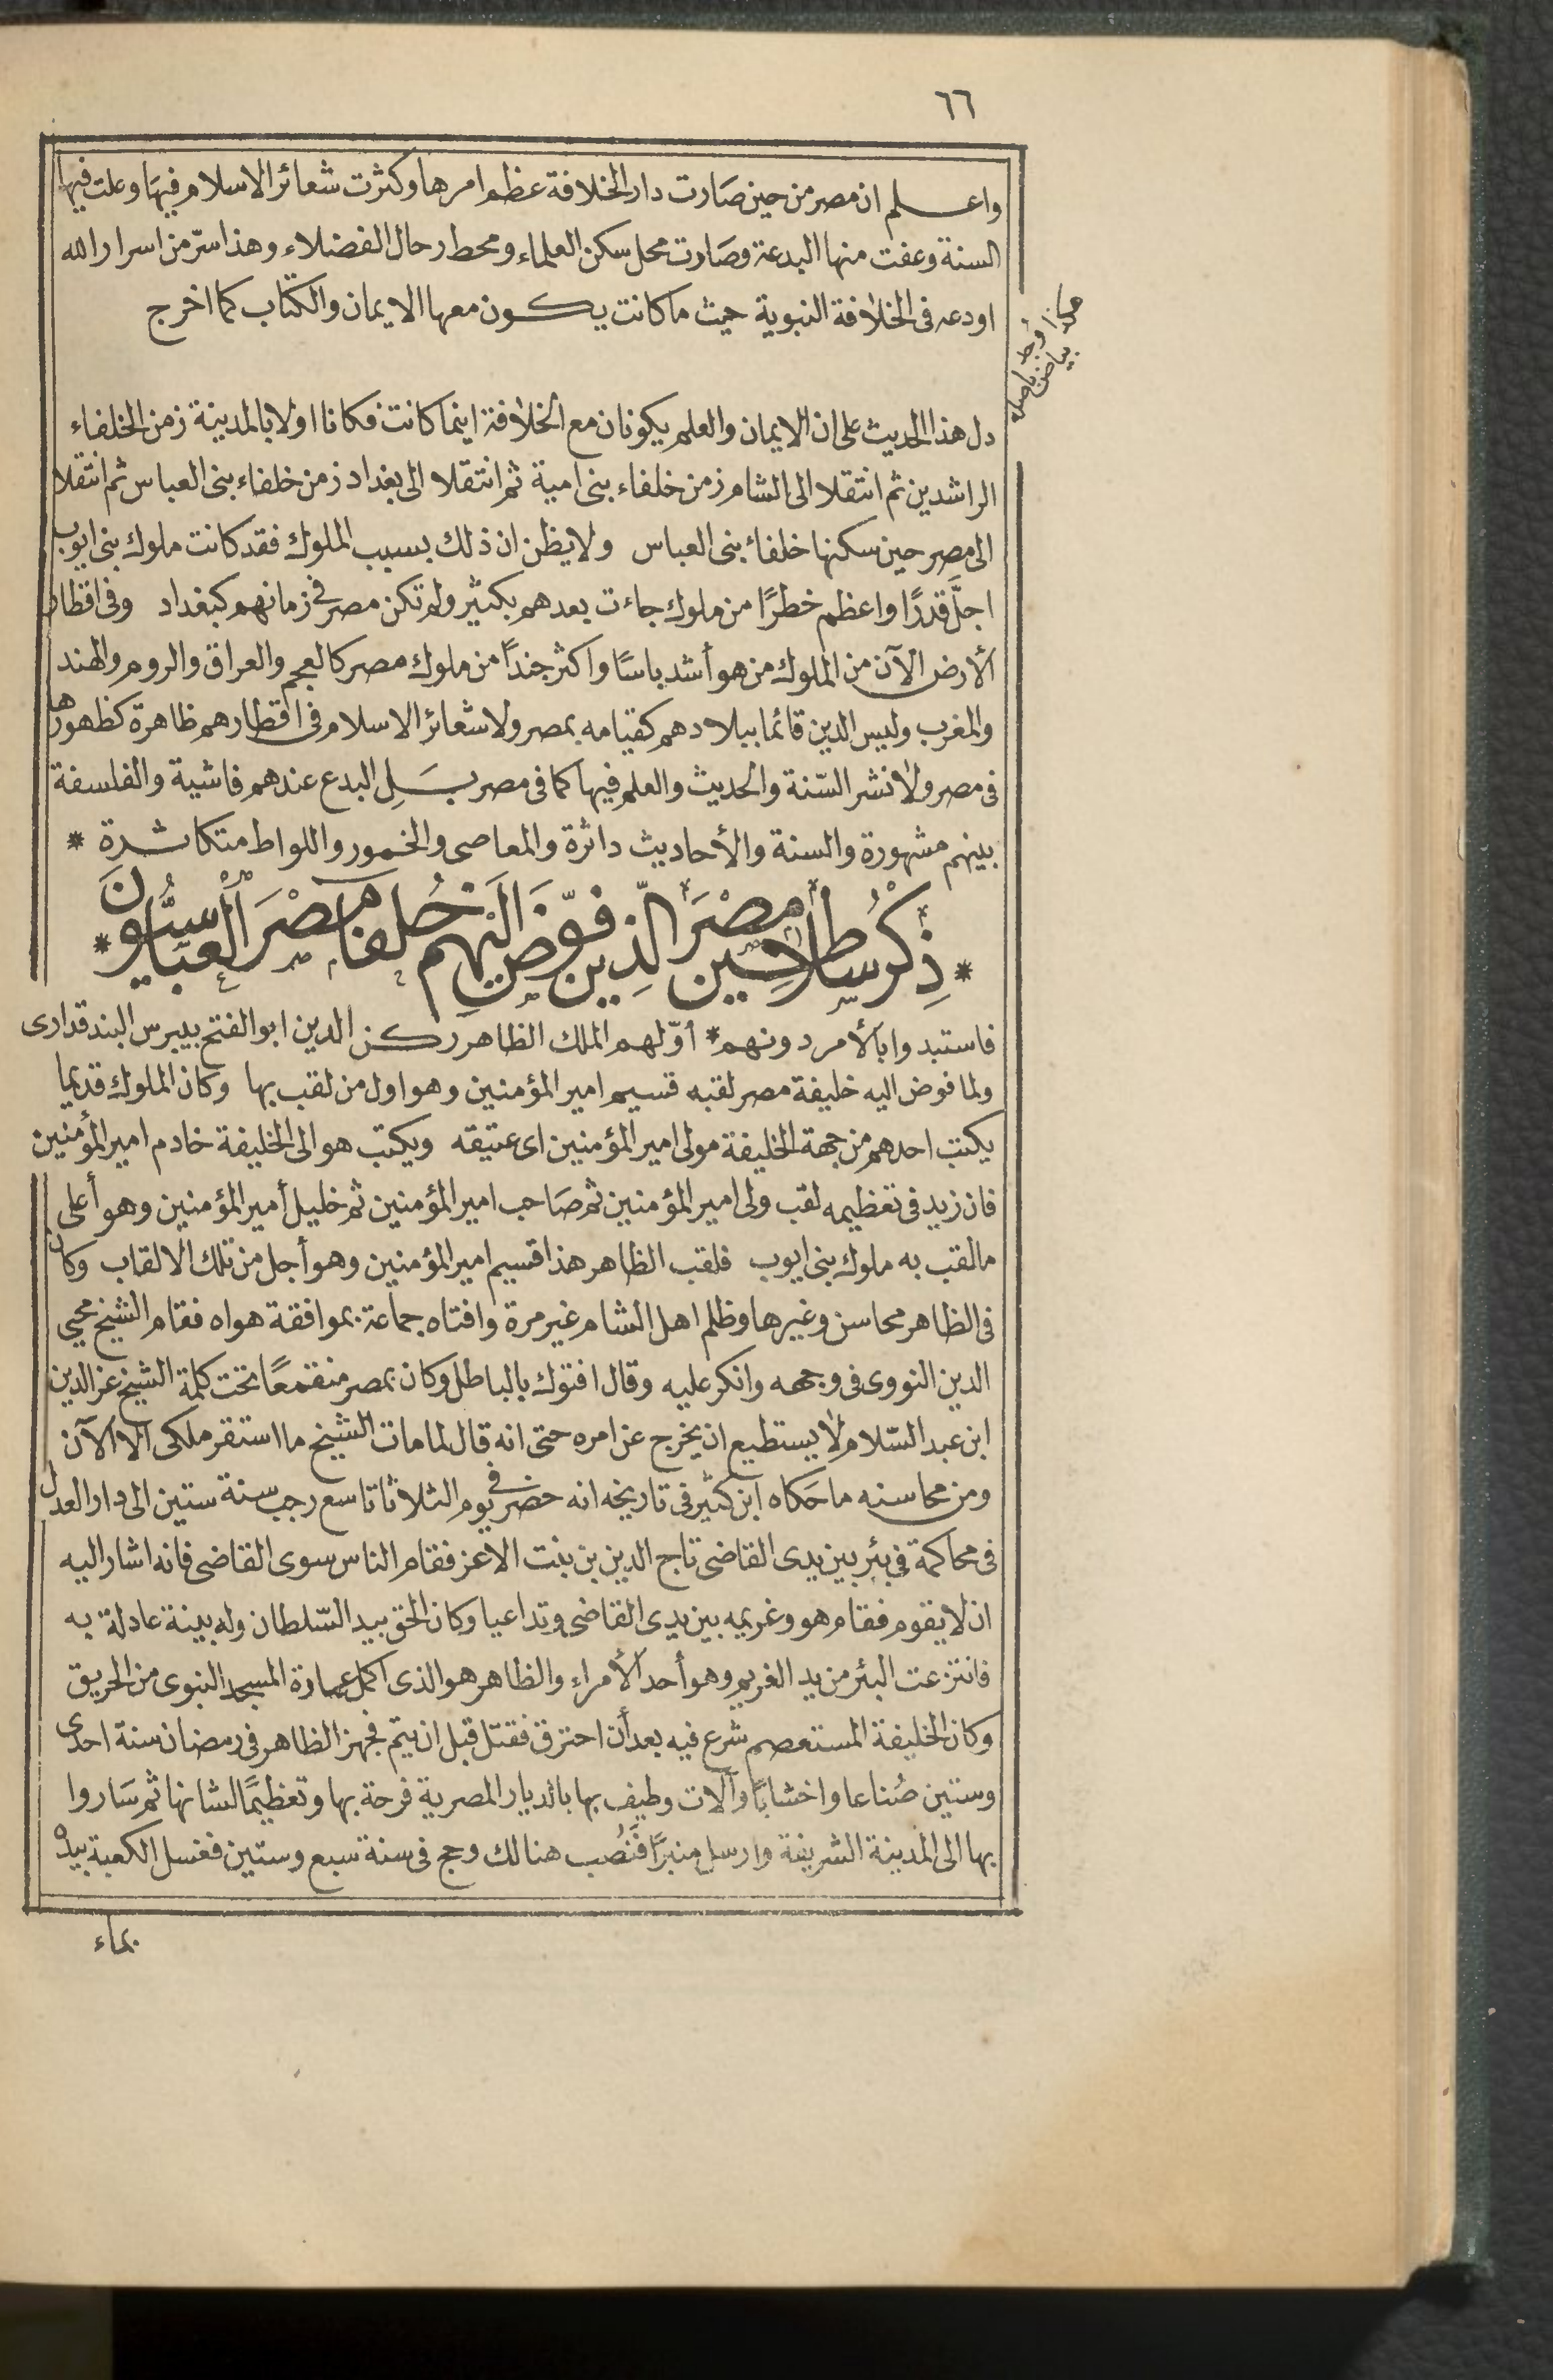 ٦٦
واعلم ان مصر من حين صَارت دار الخلافة عظم امرها وكثرت شعائر الاسلام فيهَا وعلت فيها
السنة وعفت منها البدعة وصَارت محل سكن العلماء ومحط رحال الفضلاء وهذا سرّ من اسرار الله
اودعه فى الخلافة النبوية حيث ما كانت يكون معها الايمان والكتاب كما اخرج
هكذا وجد
بياض باصله
دل هذا الحديث على ان الايمان والعلم يكونان مع الخلافة اينما كانت فكانا اولا بالمدينة زمن الخلفاء
الراشدين ثم انتقلا الى الشام زمن خلفاء بنى امية ثم انتقلا الى بغداد زمن خلفاء بنى العباس ثم انتقلا
الى مصر حين سكنها خلفاء بنى العباس ولا يظن ان ذلك بسبب الملوك فقد كانت ملوك بنى ايوب
اجلّ قدرًا واعظم خطرًا من ملوك جاءت بعدهم بكثير ولم تكن مصر فى زمانهم كبغداد وفى اقطار
ألأرض الآن من الملوك من هو أشد باسًا واكثر جنداً من ملوك مصر كالعجم والعراق والروم والهند
والمغرب وليس الدين قائما ببلادهم كقيامه بمصر ولا شعائر الاسلام فى اقطارهم ظاهرة كظهورها
فى مصر ولا نشر السّنة والحديث والعلم فيها كما فى مصر بَلِ البدع عندهم فاشية والفلسفة
بينهم مشهورة والسنة والأحاديث داثرة والمعاصى والخمور واللواط متكاثرة *
* ذِكْرُ سلاطِين مصْرَ الّذين فوّضَ اليَهْم خُلفاء مِصْرَ العبَّاسيُّونَ *
فاستبدوا بألأمر دونهم * أوّلهم الملك الظاهر ركن الدين ابو الفتح بيبرس البندقدارى
ولما فوض اليه خليفة مصر لقبه قسيم امير المؤمنين وهو اول من لقب بها وكان الملوك قديما
يكتب احدهم من جهة الخليفة مولى امير المؤمنين اى عتيقه ويكتب هو الى الخليفة خادم امير المؤمنين
فان زيد فى تعظيمه لقب ولى امير المؤمنين ثم صَاحب امير المؤمنين ثم خليل أمير المؤمنين وهو أعلى
ما لقب به ملوك بنى ايوب فلقب الظاهر هذا قسيم امير المؤمنين وهو أجل من تلك الالقاب وكان
فى الظاهر محاسن وغيرها وظلم اهل الشام غير مرة وافتاه جماعة بموافقة هواه فقام الشيخ محيى
الدين النووى فى وجهه وانكر عليه وقال افتوك بالباطل وكان بمصر منقمعًا تحت كلمة الشيخ عز الدين
ابن عبد السّلام لا يستطيع ان يخرج عن امره حتى انه قال لما مات الشيخ ما استقر ملكى الا الآن
ومن محاسنه ما حَكاه ابن كثير فى تاريخه انه حضر فى يوم الثلاثا تاسع رجب سنة ستين الى دار العدل
فى محاكمة فى بئر بين يدى القاضى تاج الدين بن بنت الاعز فقام الناس سوى القاضى فانه اشار اليه
ان لا يقوم فقام هو وغريمه بين يدى القاضى وتداعيا وكان الحق بيد السّلطان وله بينة عادلة به
فانتزعت البئر من يد الغريم وهو أحد ألأمراء والظاهر هو الذى اكمل عمارة المسجد النبوى من الحريق
وكان الخليفة المستعصم شرع فيه بعد أن احترق فقتل قبل ان يتم فجهز الظاهر فى رمضان سنة احدى
وستين صُناعا واخشابًا وآلات وطيف بها بالديار المصرية فرحة بها وتعظيمًا لشانها ثم سَاروا
بها الى المدينة الشريفة وارسل منبرًا فَنُصب هنالك وحج فى سنة سبع وستين فغسل الكعبة بيده
بماء